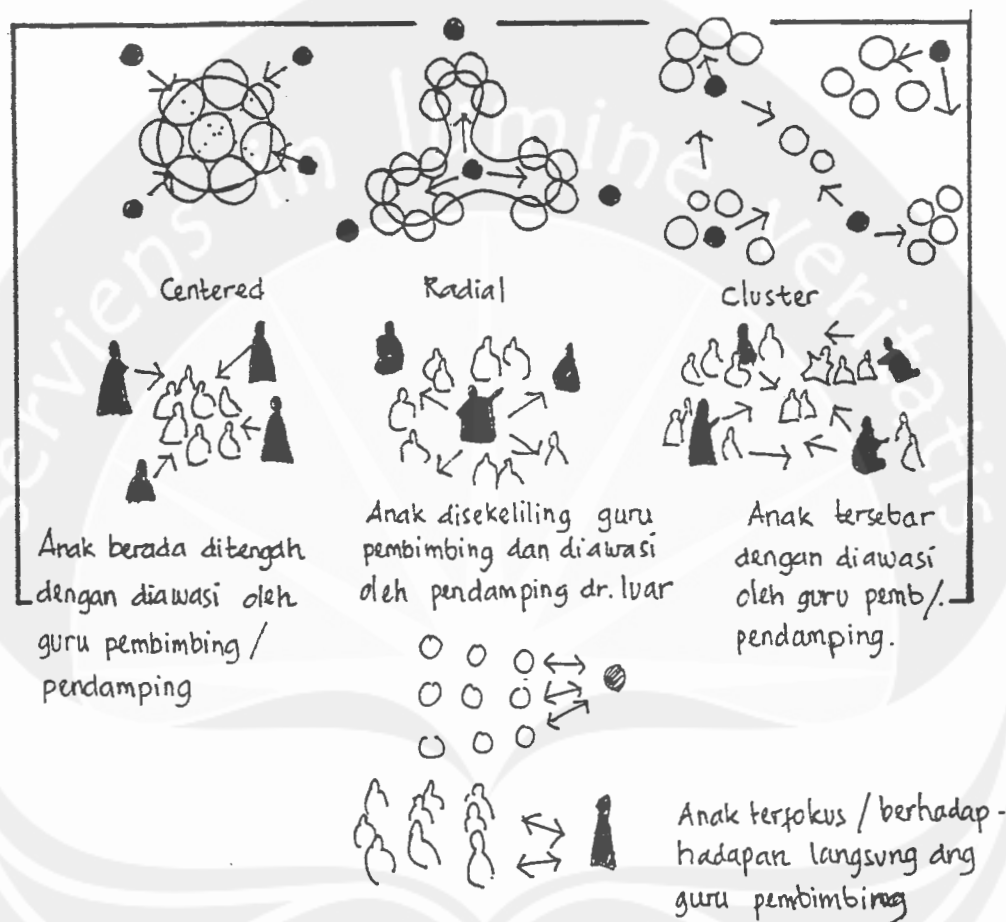 serviens in lumine veritatis
Centered
Radial
Cluster
Anak berada ditengah
dengan diawasi oleh
guru pembimbing /
pendamping
Anak disekeliling guru
pembimbing dan diawasi
oleh pendamping dr. luar
Anak tersebar
dengan diawasi
oleh guru pemb/.
pendamping.
Anak terfokus / berhadap-
hadapan langsung dng
guru pembimbing